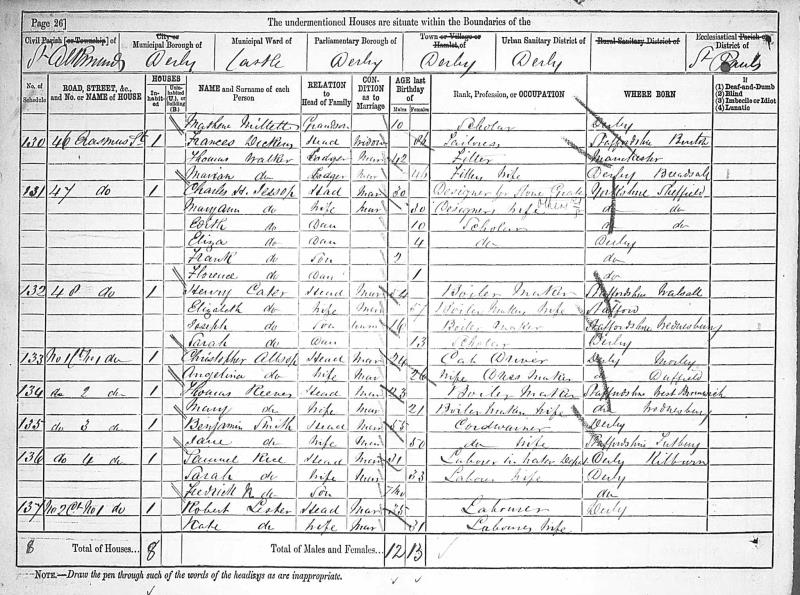 Page 26]
The undermentioned Houses are situate within the Boundaries of the
Civil Parish [or Township] of
St Alkmunds
City or Municipal Borough of
Derby
Municipal Ward of
Castle
Parliamentary Borough of
Derby
Town or Village or Hamlet, of
Derby
Urban Sanitary District of
Derby
Rural Sanitary District of
Ecclesiastical Parish or District of
St Pauls
No. of Schedule
ROAD, STREET, &c., and No. or NAME of HOUSE
HOUSES
Inhabited
Uninhabited (U.), or Building (B.)
NAME and Surname of each Person
RELATION to Head of Family
CONDITION as to Marriage
AGE last Birthday of
Males
Females
Rank, Profession, or OCCUPATION
WHERE BORN
If
(1) Deaf-and-Dumb
(2) Blind
(3) Imbecile or Idiot
(4) Lunatic
Mathew Millett Grandson 10 Scholar Derby
130 46 Erasmus St 1 Frances Dickens Head Widow Tailoress Staffordshire Burton
Thomas Walker Lodger Mar 42 Filler Manchester
Marian do Lodger Mar 46 Fillers Wife Derby Breadsall
131 47 do 1 Charles H. Jessop Head Mar 30 Designer for Stove Grates Yorkshire Sheffield
Maryann do Wife Mar 30 Designers Wife do do
Edith do Daur 10 Scholar do do
Eliza do Daur 4 do Derby
Frank do Son 2 do
Florence do Daur 1 do
132 48 do 1 Henry Cater Head Mar 54 Boiler Maker Staffordshire Walsall
Elizabeth do Wife Mar 57 Boiler Makers Wife Stafford
Joseph do Son unm 16 Boiler Maker Staffordshire Wednesbury
Sarah do Daur 13 Scholar Derby
133 No 1 Ct No 1 do 1 Christopher Allsop Head Mar 24 Cab Driver Derby Morley
Angelina do Wife Mar 26 Wife Dress Maker do Duffield
134 do 2 do 1 Thomas Reeves Head Mar 23 Boiler Maker Staffordshire West Bromwich
Mary do Wife Mar 21 Boiler Makers Wife do Wednesbury
135 do 3 do 1 Benjamin Smith Head Mar 55 Cordwainer Derby
Jane do Wife Mar 50 do Wife Staffordshire Tutbury
136 do 4 do 1 Samuel Rice Head Mar 31 Labourer in Water Depot Derby Kilburn
Sarah do Wife Mar 33 Labour Wife Derby
Fredrick R do Son 7 Mo do
137 No 2 Ct No 1 do 1 Robert Lester Head Mar 35 Labourer Derby
Kate do Wife Mar 31 Labourer Wife
8 Total of Houses... 8 Total of Males and Females... 12 13
NOTE.—Draw the pen through such of the words of the headings as are inappropriate.